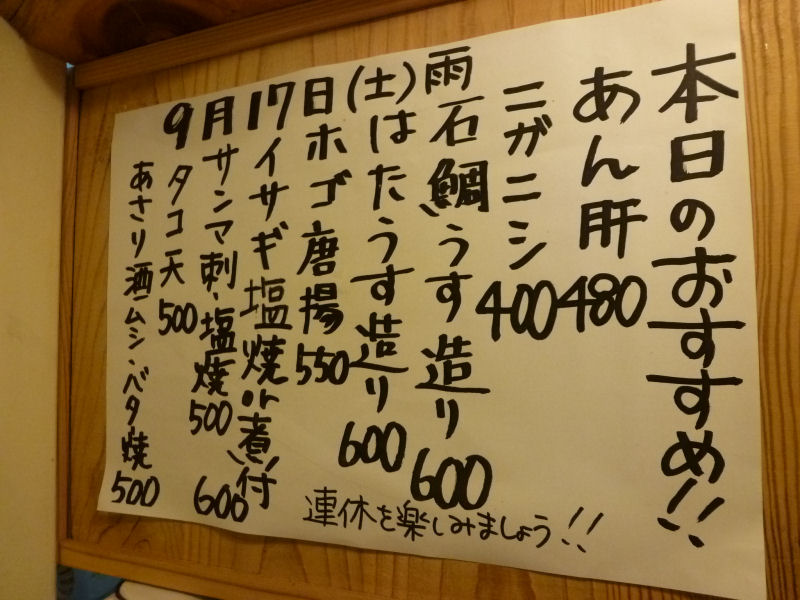 本日のおすすめ!!
あん肝 480
ニガニシ 400
石鯛うす造り 600
はたうす造り 600
ホゴ唐揚 550
イサギ塩焼or煮付 600
サンマ刺・塩焼 500
タコ天 500
あさり酒ムシ・バタ焼 500
9月17日(土)雨
連休を楽しみましょう!!